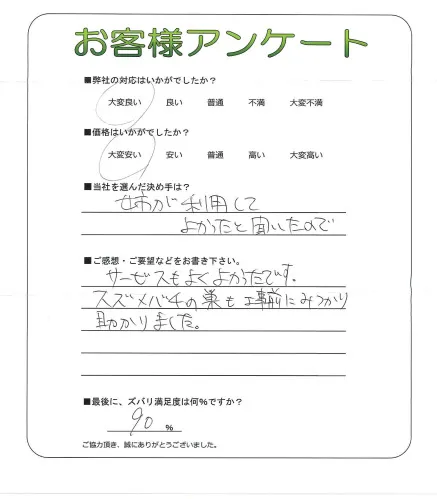 お客様アンケート
■弊社の対応はいかがでしたか？
大変良い 良い 普通 不満 大変不満
■価格はいかがでしたか？
大変安い 安い 普通 高い 大変高い
■当社を選んだ決め手は？
姉が利用して
よかったと聞いたので
■ご感想・ご要望などをお書き下さい。
サービスもよくよかったです。
スズメバチの巣も工事前にみつかり
助かりました。
■最後に、ズバリ満足度は何％ですか？
90 ％
ご協力頂き、誠にありがとうございました。